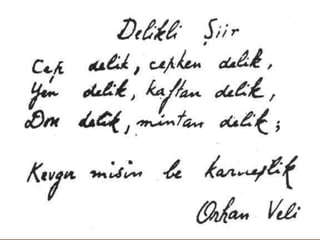 Delikli Şiir
Cep delik, cepken delik,
Yen delik, kaftan delik,
Don delik, mintan delik;
Kevgir misin be kardeşlik
Orhan Veli